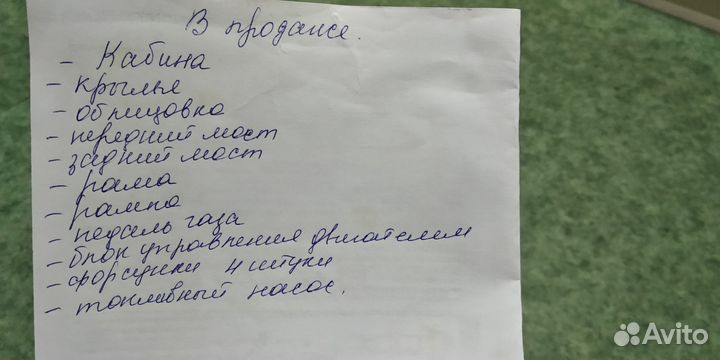 В продаже.
- Кабина
- крылья
- облицовка
- передний мост
- задний мост
- рама
- рампа
- педаль газа
- блок управления двигателем
- форсунки 4 штуки
- топливный насос.
Avito